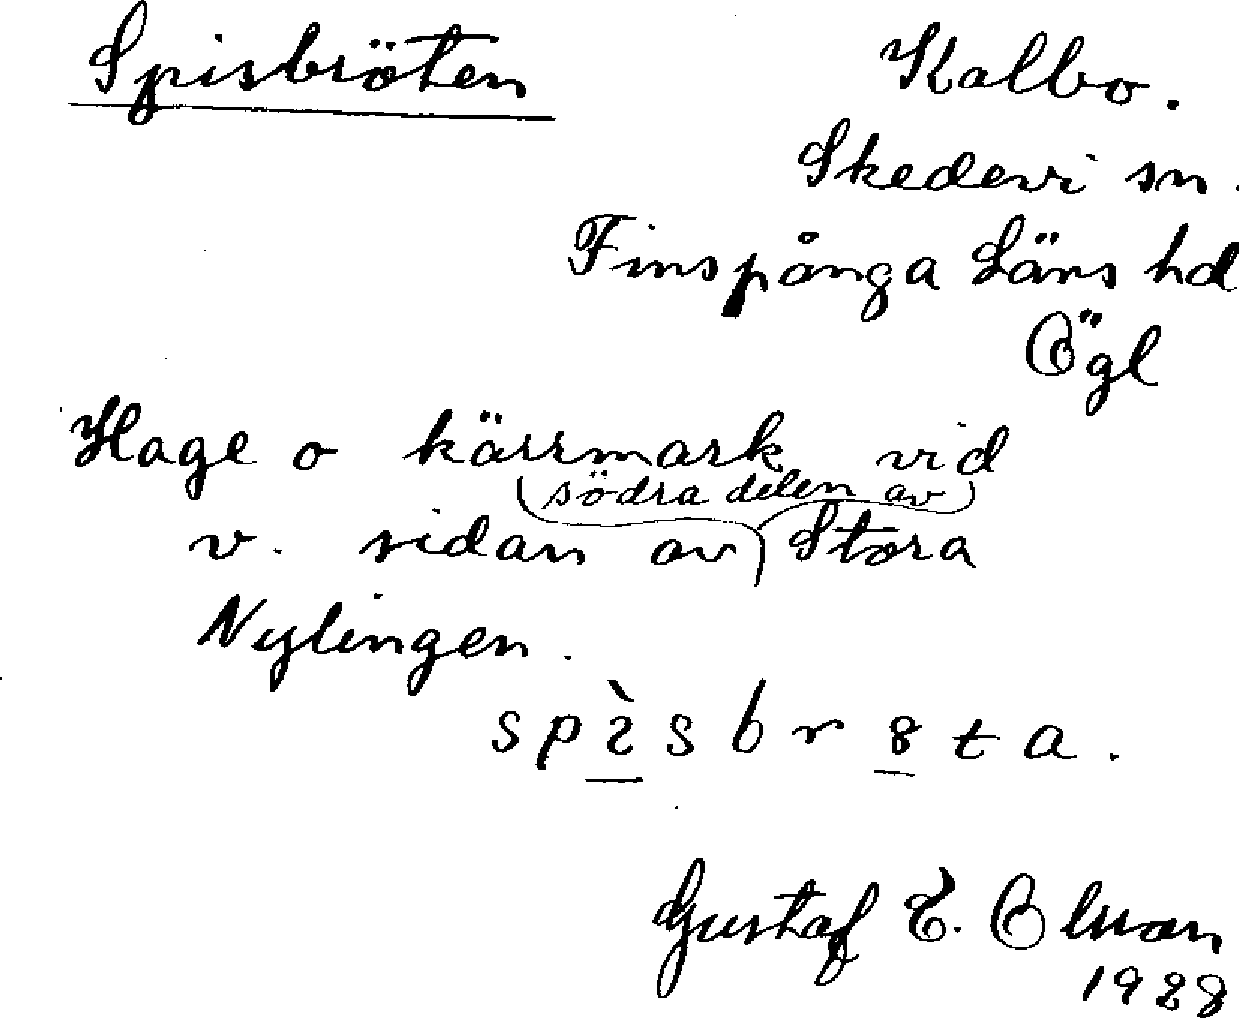 Spisbröten
Kalbo.
Skedevi sn.
Finspånga Läns hd
Ögl
Hage o kärrmark vid
södra delen av
v. sidan av Stora
Nylingen.
Gustaf E. Olsson
1928